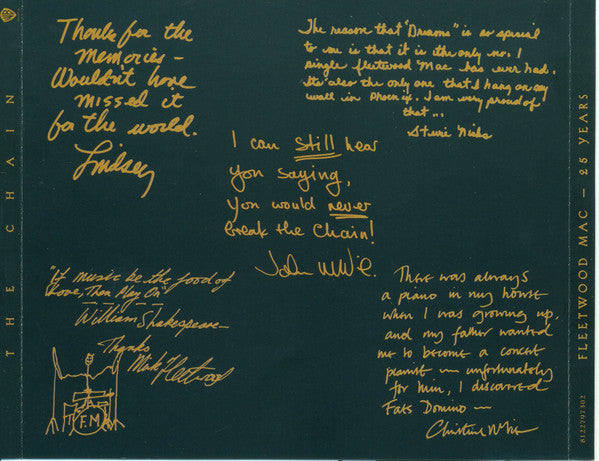 THE CHAIN
Thanks for the
memories —
Wouldn't have
missed it
for the world.
Lindsey
The reason that "Dreams" is so special
to me is that it is the only no. 1
single fleetwood Mac has ever had.
Its also the only one that I hang on my
wall in Phoenix. I am very proud of
that...
Stevie Nicks
I can still hear
you saying,
You would never
break the Chain!
John McVie.
"If music be the food of
Love, Then Play On"
William Shakespeare —
Thanks
Mick Fleetwood
F.M
There was always
a piano in my house
when I was growing up,
and my father wanted
me to become a concert
pianist — unfortunately
for him, I discovered
Fats Domino —
Christine McVie
FLEETWOOD MAC — 25 YEARS
8122797302